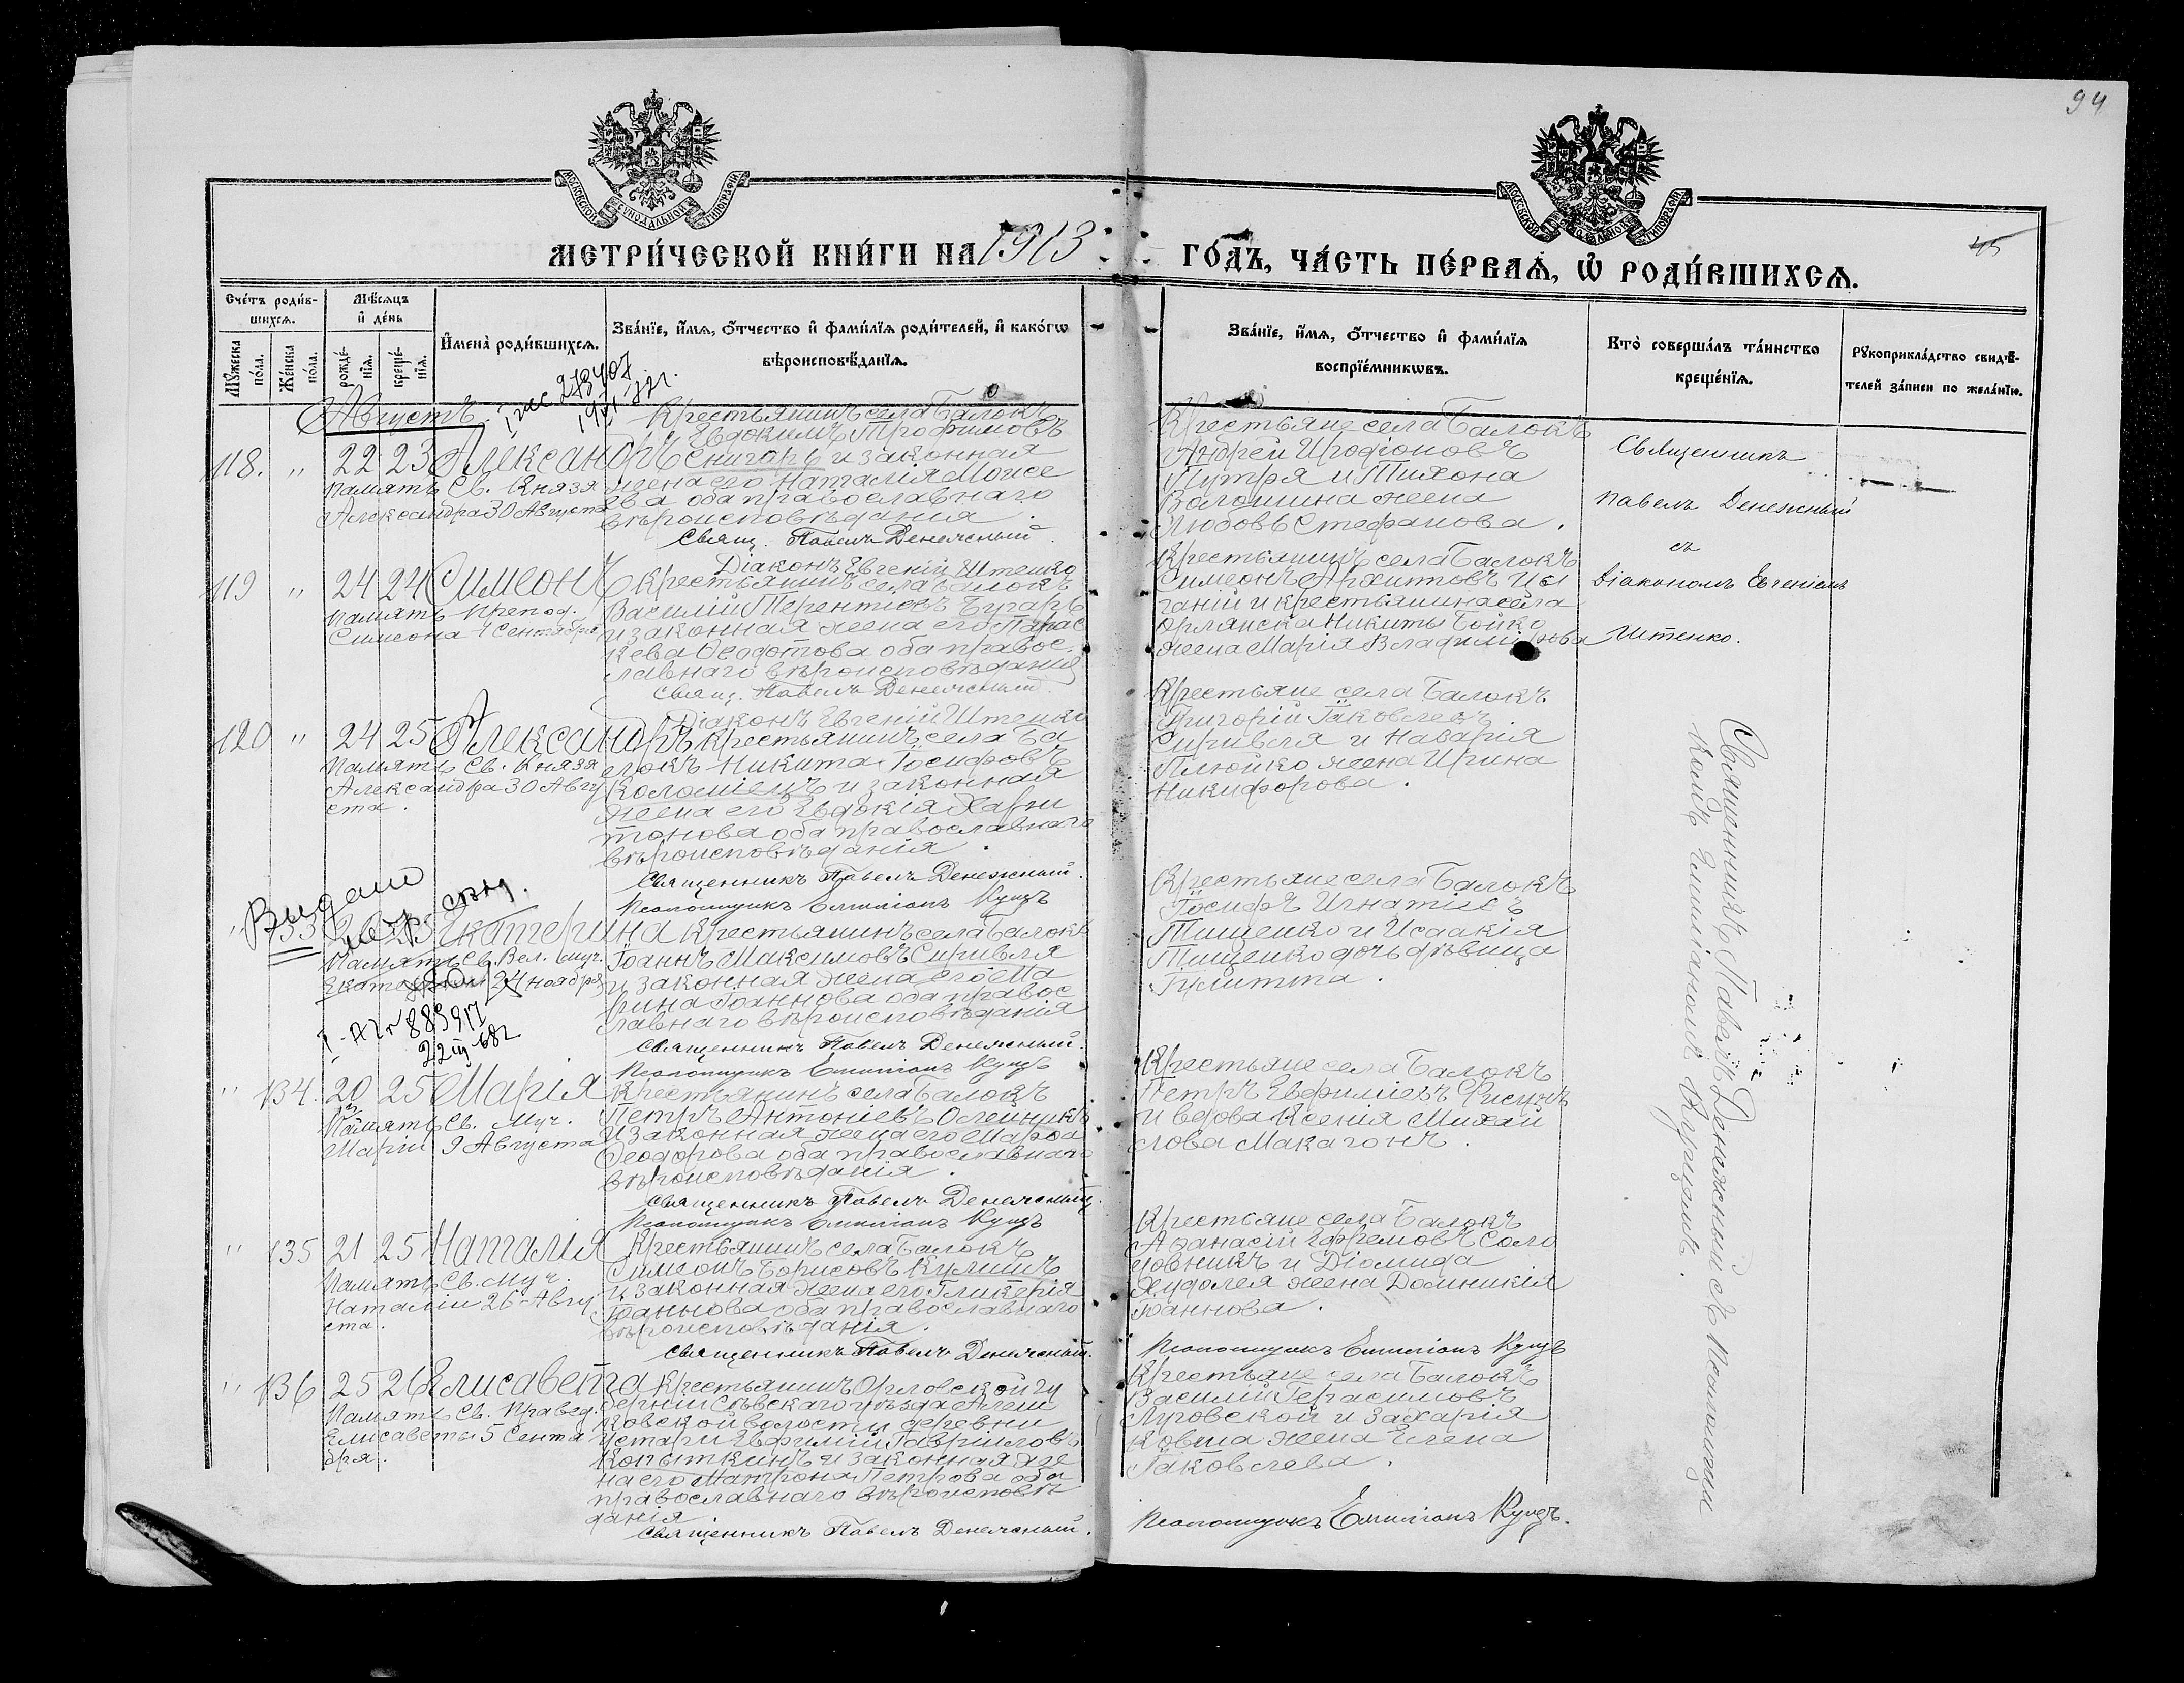 94
45
МОСКОВСКОЙ СѴНОДАЛЬНОЙ ТИПОГРАФІИ
МОСКОВСКОЙ СѴНОДАЛЬНОЙ ТИПОГРАФІИ
МЕТРИ́ЧЕСКОЙ КНИ́ГИ НА 1913 ГО́ДЪ, ЧА́СТЬ ПЕ́РВАѦ, Ѡ РОДИ́ВШИХСѦ.
Сче́тъ роди́в-
шихсѧ.
Мꙋ́жеска по́ла.
Же́нска по́ла.
Мѣ́сѧцъ
и҆ де́нь
рожде́-
нїѧ.
креще́-
нїѧ.
И҆мена̀ роди́вшихсѧ.
Зва́нїе, и҆́мѧ, ѻ҆́тчество и҆ фами́лїѧ роди́телей, и҆ како́гѡ
вѣроисповѣ́данїѧ.
Зва́нїе, и҆́мѧ, ѻ҆́тчество и҆ фами́лїѧ
воспрїе́мникѡвъ.
Кто̀ соверша́лъ та́инство
креще́нїѧ.
Рꙋкоприкла́дство свидѣ́-
телей за́писи по жела́нїю.
Августъ.
118. " 22 23 Александръ
Память Св. Князя
Александра 30 Августа
Крестьянинъ села Балокъ
Евдокимъ Трофимовъ
Снигарь и законная
жена его Наталія Моисе
ева оба православнаго
вѣроисповѣданія.
Свящ. Павелъ Денежный.
Діаконъ Евгеній Штенко
Крестьяне села Балокъ
Андрей Иродіоновъ
Путря и Тихона
Волошина жена
Любовь Стефанова.
Священникъ
Павелъ Денежный
съ
Діакономъ Евгеніемъ
Штенко.
119 " 24 24 Симеонъ
Память Препод.
Симеона 1 Сентября
Крестьянинъ села Балокъ
Василій Терентіевъ Бугарь
и законная жена его Парас
кева Ѳеодотова оба правос
лавнаго вѣроисповѣданія
Свящ. Павелъ Денежный.
Діаконъ Евгеній Штенко
Крестьянинъ села Балокъ
Симеонъ Архиповъ Цы
ганій и крестьянина села
Орлянска Никиты Бойко
жена Марія Владимірова
120 " 24 25 Александръ
Память Св. Князя
Александра 30 Авгу
ста.
Крестьянинъ села Ба
локъ Никита Іосифовъ
Коломіецъ и законная
жена его Евдокія Хари
тонова оба православнаго
вѣроисповѣданія.
Священникъ Павелъ Денежный.
Псаломщикъ Емиліанъ Куцъ
Крестьяне села Балокъ
Григорій Іаковлевъ
Сиривля и Назарія
Плюйко жена Ирина
Никифорова.
Выдано
" 133 20 25 Екатерина
Память Св. Вел. муч.
24 ноября
Крестьянинъ села Балокъ
Іоаннъ Максимовъ Сиривля
и законная жена его Ма
рина Іоаннова оба правос
лавнаго вѣроисповѣданія
Священникъ Павелъ Денежный.
Псаломщикъ Емиліанъ Куцъ
Крестьяне села Балокъ
Іосифъ Игнатіевъ
Тищенко и Исаакія
Тищенко дочь дѣвица
Іулитта.
" 134. 20 25 Марія
Память Св. Муч.
Маріи 9 Августа
Крестьянинъ села Балокъ
Петръ Антоніевъ Олейникъ
и законная жена его Марѳа
Ѳеодорова оба православнаго
вѣроисповѣданія.
Священникъ Павелъ Денежный.
Псаломщикъ Емиліанъ Куцъ
Крестьяне села Балокъ
Петръ Евфиміевъ Фисунъ
и вдова Ксенія Михай
лова Макагонъ.
" 135 21 25 Наталія
Память Св. Муч.
Наталіи 26 Авгу
ста.
Крестьянинъ села Балокъ
Симеонъ Борисовъ Кулишъ
и законная жена его Гликерія
Іоаннова оба православнаго
вѣроисповѣданія.
Священникъ Павелъ Денежный.
Крестьяне села Балокъ
Аѳанасій Ефремовъ Соло
довникъ и Діомида
Худолея жена Домникія
Іоаннова.
Псаломщикъ Емиліанъ Куцъ
" 136 25 26 Елисавета
Память Св. Правед.
Елисаветы 5 Сентя
бря.
Крестьянинъ Орловской гу
берніи Сѣвскаго уѣзда Алеш
ковской волости деревни
Устари Евфимій Гавріиловъ
Копыткинъ и законная же
на его Матрона Петрова оба
православнаго вѣроисповѣ
данія
Священникъ Павелъ Денежный.
Крестьяне села Балокъ
Василій Герасимовъ
Луговской и Захарія
Ковша жена Елена
Іаковлева.
Псаломщикъ Емиліанъ Куцъ.
Священникъ Павелъ Денежный съ Псаломщи
комъ Емиліаномъ Куцомъ.